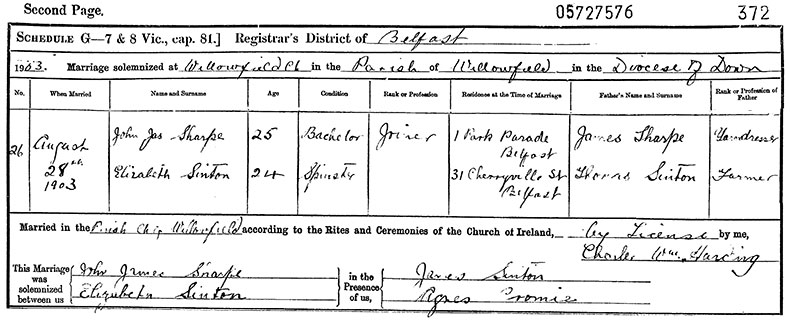 Second Page. 05727576 372
SCHEDULE G—7 & 8 Vic., cap. 81.] Registrar's District of Belfast
1903. Marriage solemnized at Willowfield Ch in the Parish of Willowfield in the Diocese of Down
No. When Married Name and Surname Age Condition Rank or Profession Residence at the Time of Marriage Father's Name and Surname Rank or Profession of Father
26 August 28th 1903 John Jas Sharpe 25 Bachelor Joiner 1 Park Parade Belfast James Sharpe Yarndresser
Elizabeth Sinton 24 Spinster 31 Cherryville St Belfast Thomas Sinton Farmer
Married in the Parish Ch, Willowfield according to the Rites and Ceremonies of the Church of Ireland, by License by me,
Charles Wm. Harding
This Marriage was solemnized between us John James Sharpe in the Presence of us, James Sinton
Elizabeth Sinton Agnes